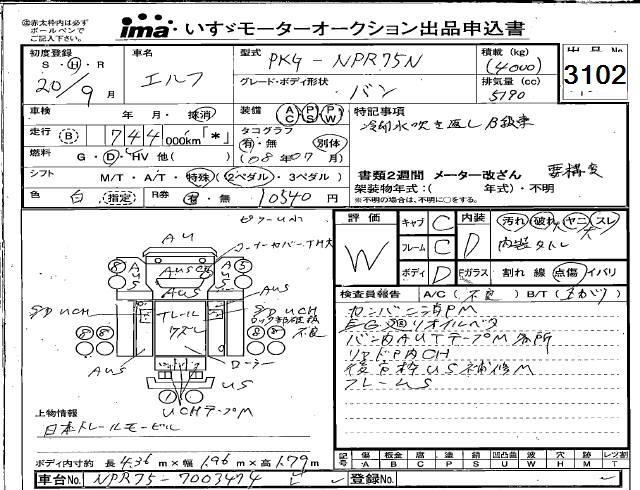 ㊟赤太枠内は必ず
ボールペンで
ご記入下さい。
ima いすゞモーターオークション出品申込書
初度登録 車名 型式 PKG-NPR75N 積載(kg) (4000) 出品No
S・H・R 20/9月 エルフ グレード・ボディ形状 バン 排気量(cc) 5190 3102
車検 年・月・抹消 装備 AC PS PW 特記事項
冷却水吹き返し B級車
走行 B 744000km「*」 タコグラフ 有・無 別体
燃料 G・D・HV 他( ) (08年07月) 書類2週間 メーター改ざん 要構変
シフト M/T・A/T・特殊(2ペダル・3ペダル) 架装物年式:( 年式)・不明
色 白(指定) R券 有・無 10540円 ※不明の場合は、不明に○をする。
評価 W キャブ C 内装 D 汚れ 破れ ヤニ スレ 大
フレーム C 内装タトレ
ボディ D Fガラス 割れ 線 点傷 イバリ
検査員報告 A/C(不良) B/T(上がり)
カンバン消PM
EG廻リオイルベタ
バン内AUTテープM多所
リアドア内CH
後窓枠US補修M
フレームS
AU
コーナーカバーTH大
AU S
AUS
S
5
AUS
8
8
8
UCH
トレール
クズレ
UCH
不良
AUS
ローラー
US
1
UCHテープM
上物情報
日本トレールモービル
ボディ内寸約 長 4.36 m×幅 1.96 m×高 1.79 m
記号 傷A 板金B 腐C 塗P 錆S 凹凸曲U 波W 穴H 跡M レツ割T
車台No. NPR75-7003474